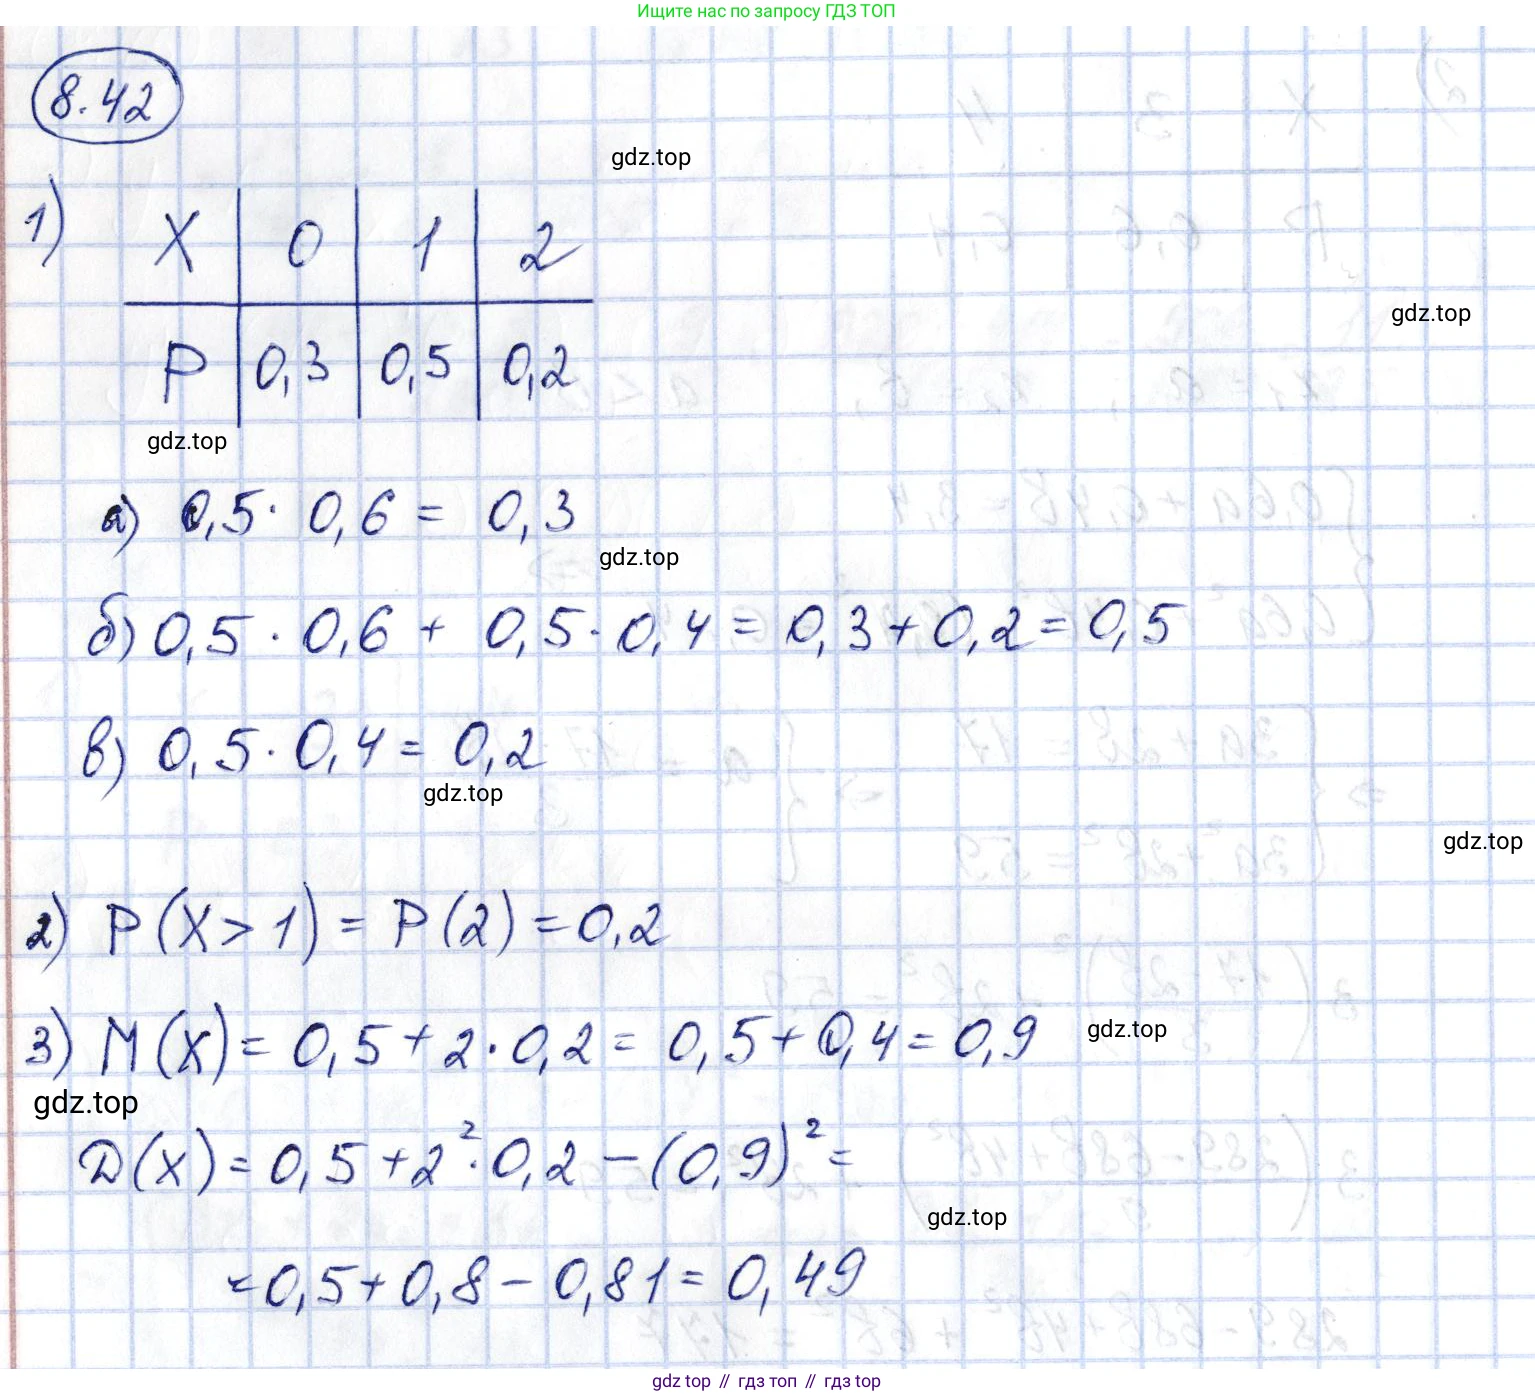 Ищите нас по запросу ГДЗ ТОП
8.42
gdz.top
1) X 0 1 2
gdz.top
P 0,3 0,5 0,2
gdz.top
а) 0,5 · 0,6 = 0,3
gdz.top
б) 0,5 · 0,6 + 0,5 · 0,4 = 0,3 + 0,2 = 0,5
в) 0,5 · 0,4 = 0,2
gdz.top
gdz.top
2) P(X > 1) = P(2) = 0,2
3) M(X) = 0,5 + 2 · 0,2 = 0,5 + 0,4 = 0,9
gdz.top
gdz.top
D(X) = 0,5 + 2² · 0,2 − (0,9)² =
gdz.top
= 0,5 + 0,8 − 0,81 = 0,49
gdz top // гдз топ // гдз top